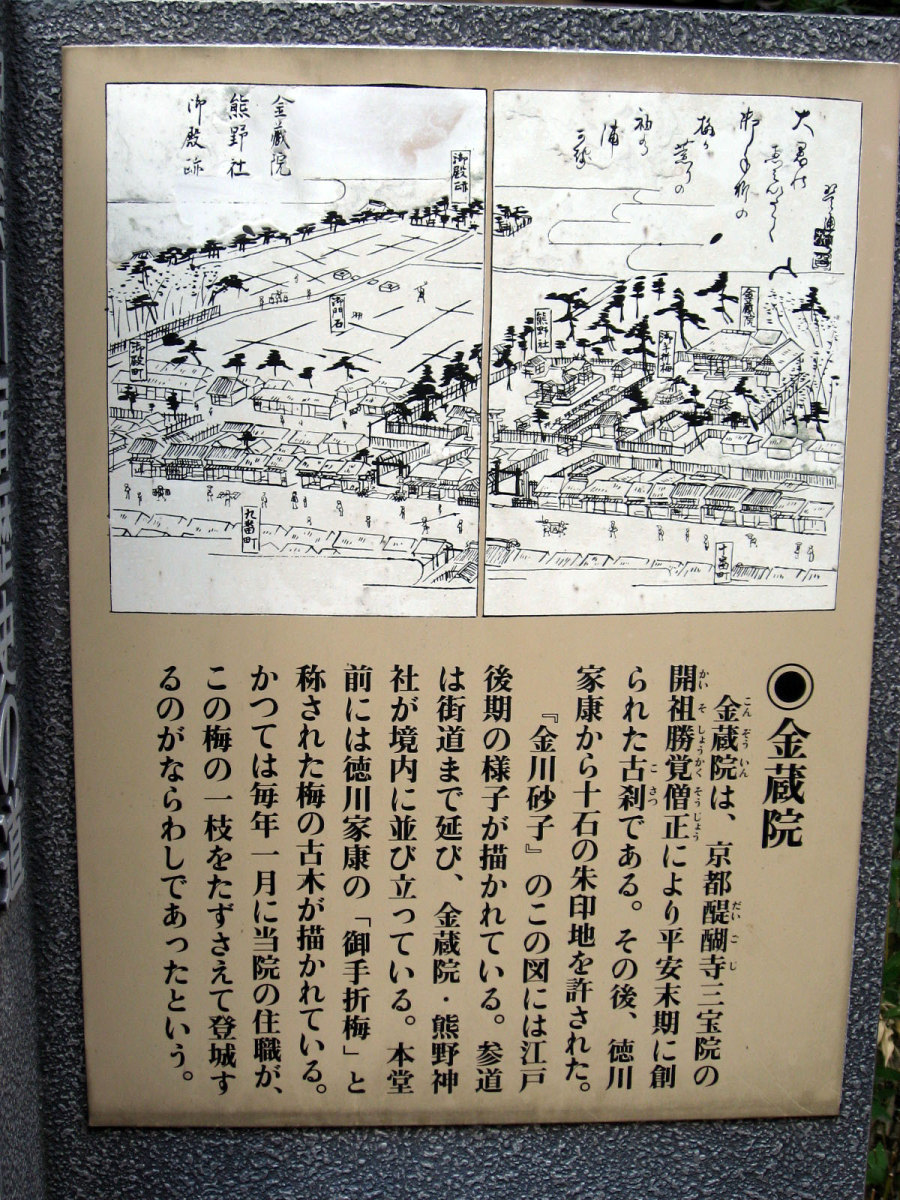 金蔵院
熊野社
御殿跡
御殿跡
御門石
御殿町
九番町
熊野社
御手折梅
金蔵院
十番町
金蔵院
金蔵院は、京都醍醐寺三宝院の
開祖勝覚僧正により平安末期に創
られた古刹である。その後、徳川
家康から十石の朱印地を許された。
『金川砂子』のこの図には江戸
後期の様子が描かれている。参道
は街道まで延び、金蔵院・熊野神
社が境内に並び立っている。本堂
前には徳川家康の「御手折梅」と
称された梅の古木が描かれている。
かつては毎年一月に当院の住職が、
この梅の一枝をたずさえて登城す
るのがならわしであったという。